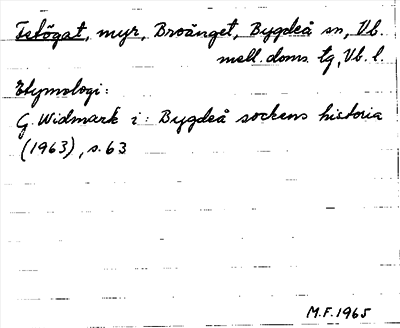 Tetögat, myr, Broänget, Bygdeå sn, Vb.
mell. doms. tg, Vb. l.
Etymologi:
G. Widmark i: Bygdeå sockens historia
(1963), s. 63
M.F. 1965